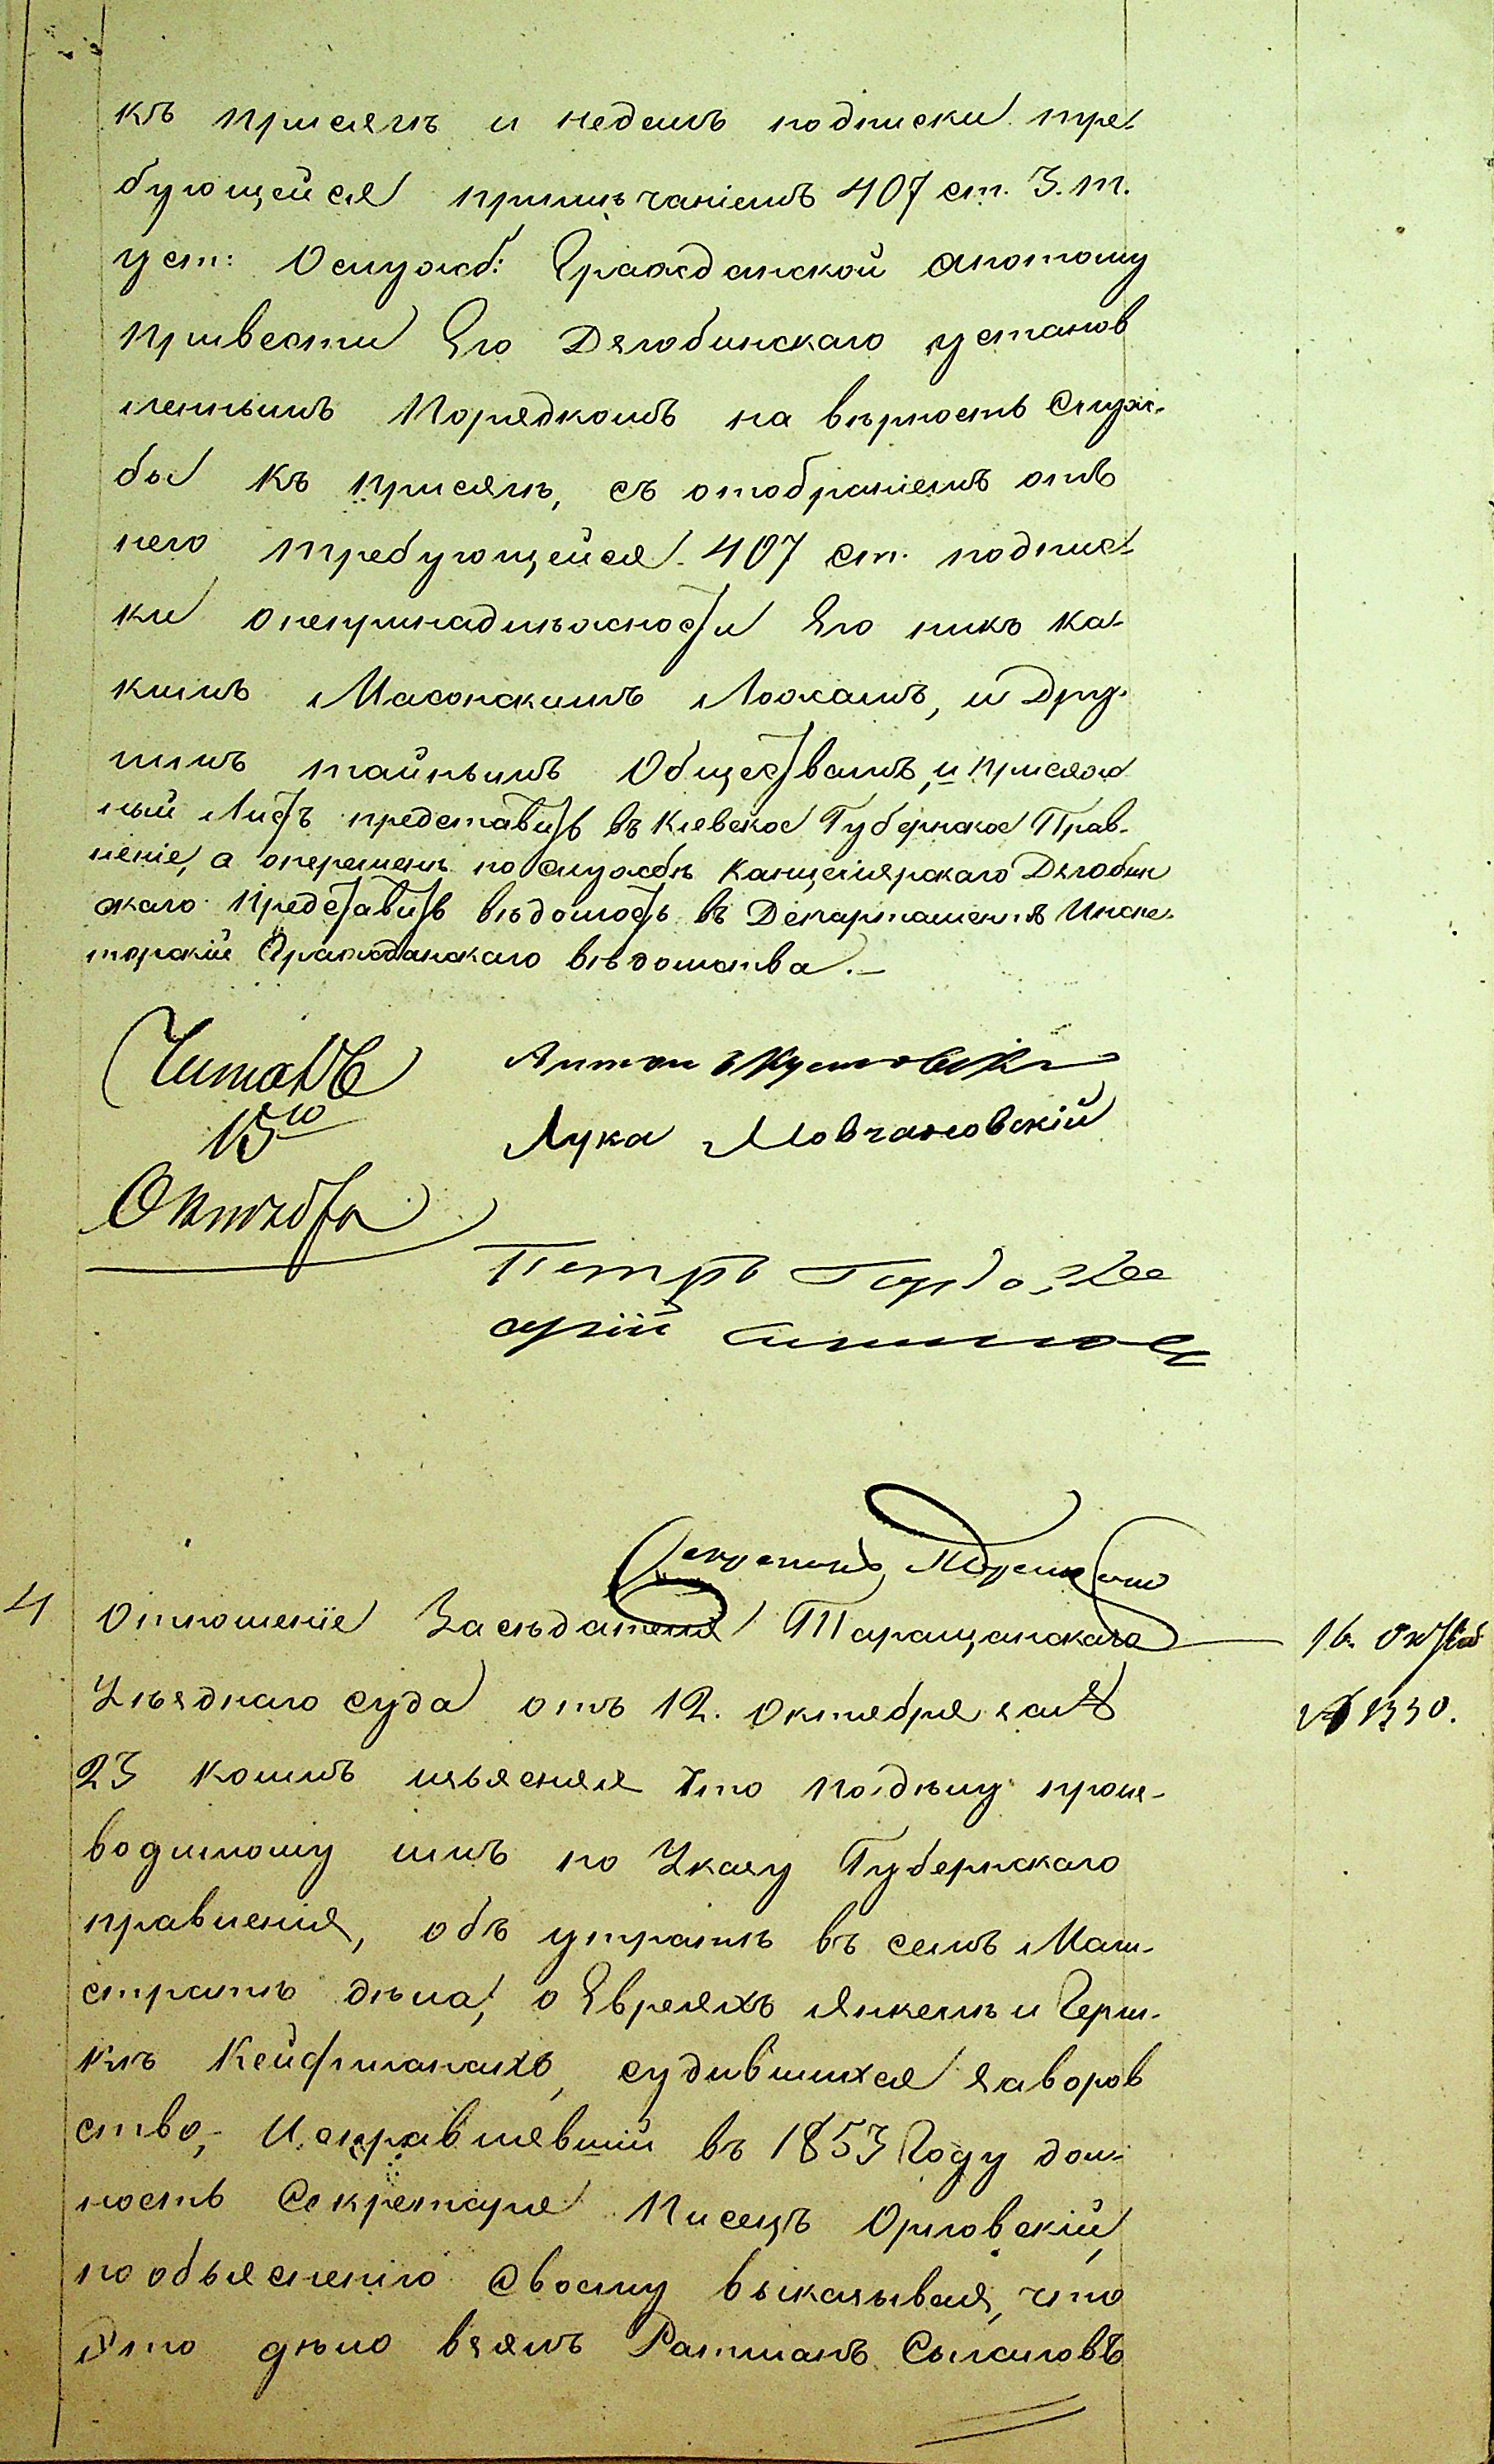 къ присягѣ и недалъ подписки тре-
бующейся примѣчаніемъ 407 ст. 3. т.
уст: Ослужб: Гражданской апотому
привести Его Дзюбинскаго установ
леннымъ Порядкомъ на вѣрность Служ-
бы къ присягѣ, съ отобраніемъ отъ
него требующейся 407 ст. подпис-
ки онепринадлѣжности Его никъ ка-
кимъ Масонскимъ Ложамъ, и Дру-
гимъ тайнымъ Обществамъ, и присяж
ный Листъ представить въ Кіевское Губернское Прав-
леніе, а оперемѣнѣ по службѣ Канцелярскаго Дзюбин
скаго Представить вѣдомость въ Департаментъ Инспе-
торскій Гражданскаго вѣдомства.-
Читалъ
15го
Октября
Антон
Лука Мовчановскій
Петръ
Секретарь
4 Отношеніе Засѣдателя Таращанскаго
Уѣзднаго суда отъ 12. Октября за№
23 коимъ изъясняя что подѣлу произ-
водимому имъ по Указу Губернскаго
правленія, объ утратѣ въ семъ Маги-
стратѣ дѣла, о Евреяхъ Янкелѣ и Герш-
кѣ Кейфманахъ, судившихся заворов
ство,- Исправлявшій въ 1853 Году дол-
ность Секретаря Писецъ Орловскій,
по объясненію Своему выказывая, что
Это дѣло взялъ Ратманъ
16. Октяб
№ 1330.